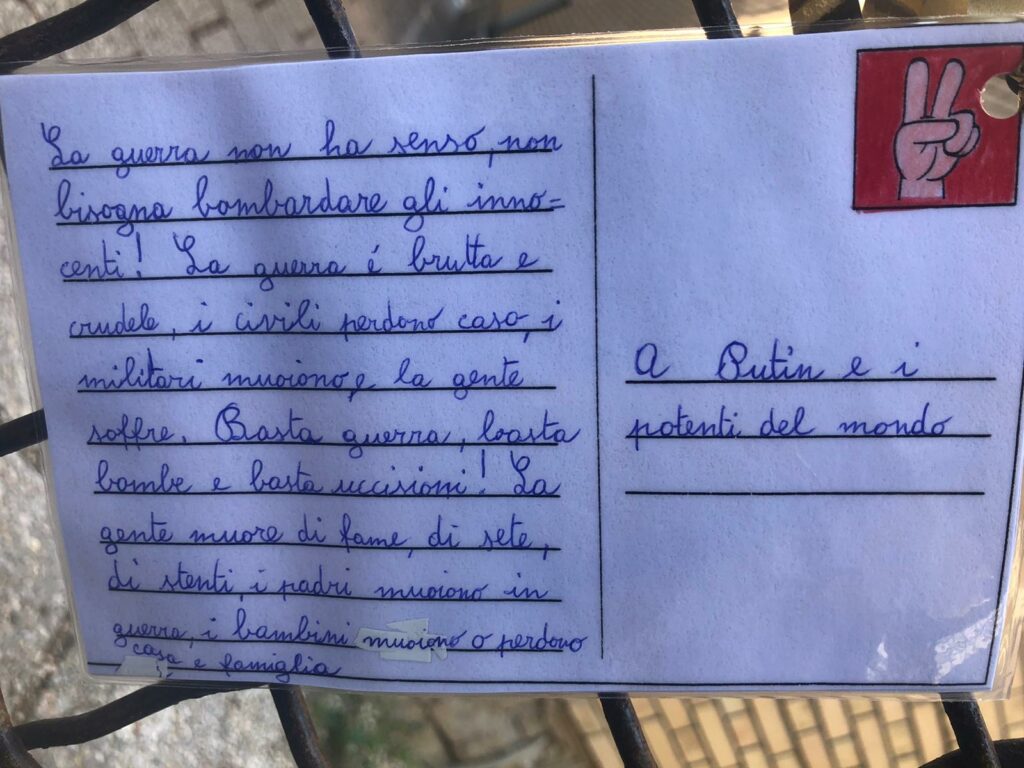 La guerra non ha senso, non
bisogna bombardare gli inno=
centi! La guerra é brutta e
crudele, i civili perdono casa, i
militari muoiono, e la gente
soffre. Basta guerra, basta
bombe e basta uccisioni! La
gente muore di fame, di sete,
di stenti, i padri muoiono in
guerra, i bambini muoiono o perdono
casa e famiglia
A Putin e i
potenti del mondo